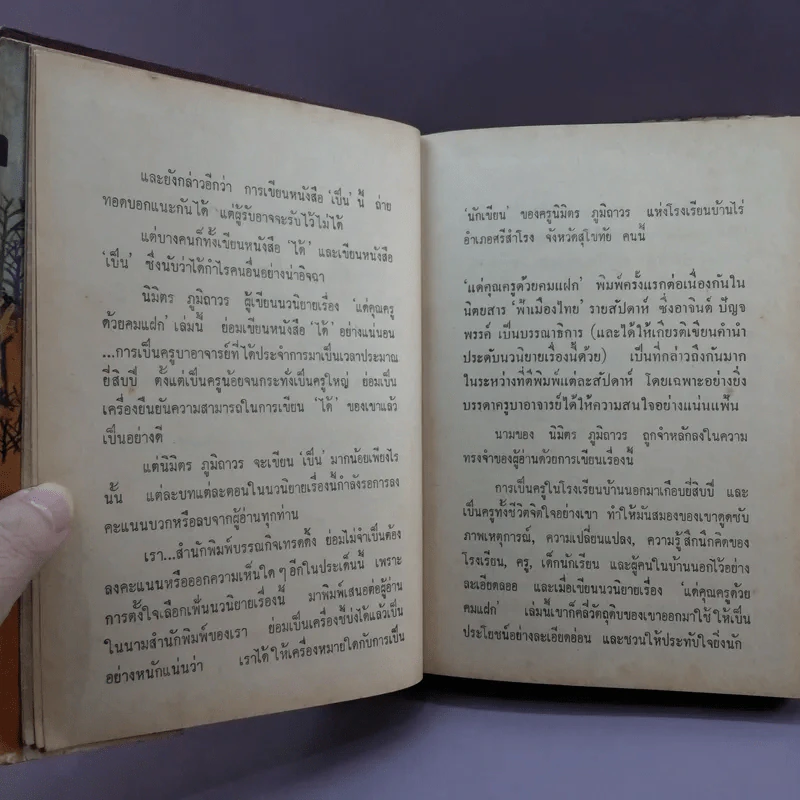 และยังกล่าวอีกว่า การเขียนหนังสือ 'เป็น' นี้ ถ่าย
ทอดบอกแนะกันได้ แต่ผู้รับอาจจะรับไว้ไม่ได้
แต่บางคนก็ทั้งเขียนหนังสือ 'ได้' และเขียนหนังสือ
'เป็น' ซึ่งนับว่าได้กำไรคนอื่นอย่างน่าอิจฉา
นิมิตร ภูมิถาวร ผู้เขียนนวนิยายเรื่อง 'แด่คุณครู
ด้วยคมแฝก' เล่มนี้ ย่อมเขียนหนังสือ 'ได้' อย่างแน่นอน
...การเป็นครูบาอาจารย์ที่ได้ประจำการมาเป็นเวลาประมาณ
ยี่สิบปี ตั้งแต่เป็นครูน้อยจนกระทั่งเป็นครูใหญ่ ย่อมเป็น
เครื่องยืนยันความสามารถในการเขียน 'ได้' ของเขาแล้ว
เป็นอย่างดี
แต่นิมิตร ภูมิถาวร จะเขียน 'เป็น' มากน้อยเพียงไร
นั้น แต่ละบทแต่ละตอนในนวนิยายเรื่องนี้กำลังรอการลง
คะแนนบวกหรือลบจากผู้อ่านทุกท่าน
เรา...สำนักพิมพ์บรรณกิจเทรดดิ้ง ย่อมไม่จำเป็นต้อง
ลงคะแนนหรือออกความเห็นใดๆ อีกในประเด็นนี้ เพราะ
การตั้งใจเลือกเฟ้นนวนิยายเรื่องนี้ มาพิมพ์เสนอต่อผู้อ่าน
ในนามสำนักพิมพ์ของเรา ย่อมเป็นเครื่องชี้บ่งได้แล้วเป็น
อย่างหนักแน่นว่า เราได้ให้เครื่องหมายใดกับการเป็น
'นักเขียน' ของครูนิมิตร ภูมิถาวร แห่งโรงเรียนบ้านไร่
อำเภอศรีสำโรง จังหวัดสุโขทัย คนนี้
'แด่คุณครูด้วยคมแฝก' พิมพ์ครั้งแรกต่อเนื่องกันใน
นิตยสาร 'ฟ้าเมืองไทย' รายสัปดาห์ ซึ่งอาจินต์ ปัญจ
พรรค์ เป็นบรรณาธิการ (และได้ให้เกียรติเขียนคำนำ
ประดับนวนิยายเรื่องนี้ด้วย) เป็นที่กล่าวถึงกันมาก
ในระหว่างที่ตีพิมพ์แต่ละสัปดาห์ โดยเฉพาะอย่างยิ่ง
บรรดาครูบาอาจารย์ได้ให้ความสนใจอย่างแน่นแฟ้น
นามของ นิมิตร ภูมิถาวร ถูกจำหลักลงในความ
ทรงจำของผู้อ่านด้วยการเขียนเรื่องนี้
การเป็นครูในโรงเรียนบ้านนอกมาเกือบยี่สิบปี และ
เป็นครูทั้งชีวิตจิตใจอย่างเขา ทำให้มันสมองของเขาดูดซับ
ภาพเหตุการณ์, ความเปลี่ยนแปลง, ความรู้สึกนึกคิดของ
โรงเรียน, ครู, เด็กนักเรียน และผู้คนในบ้านนอกไว้อย่าง
ละเอียดลออ และเมื่อเขียนนวนิยายเรื่อง 'แด่คุณครูด้วย
คมแฝก' เล่มนี้เขาก็คลี่วัตถุดิบของเขาออกมาใช้ ให้เป็น
ประโยชน์อย่างละเอียดอ่อน และชวนให้ประทับใจยิ่งนัก